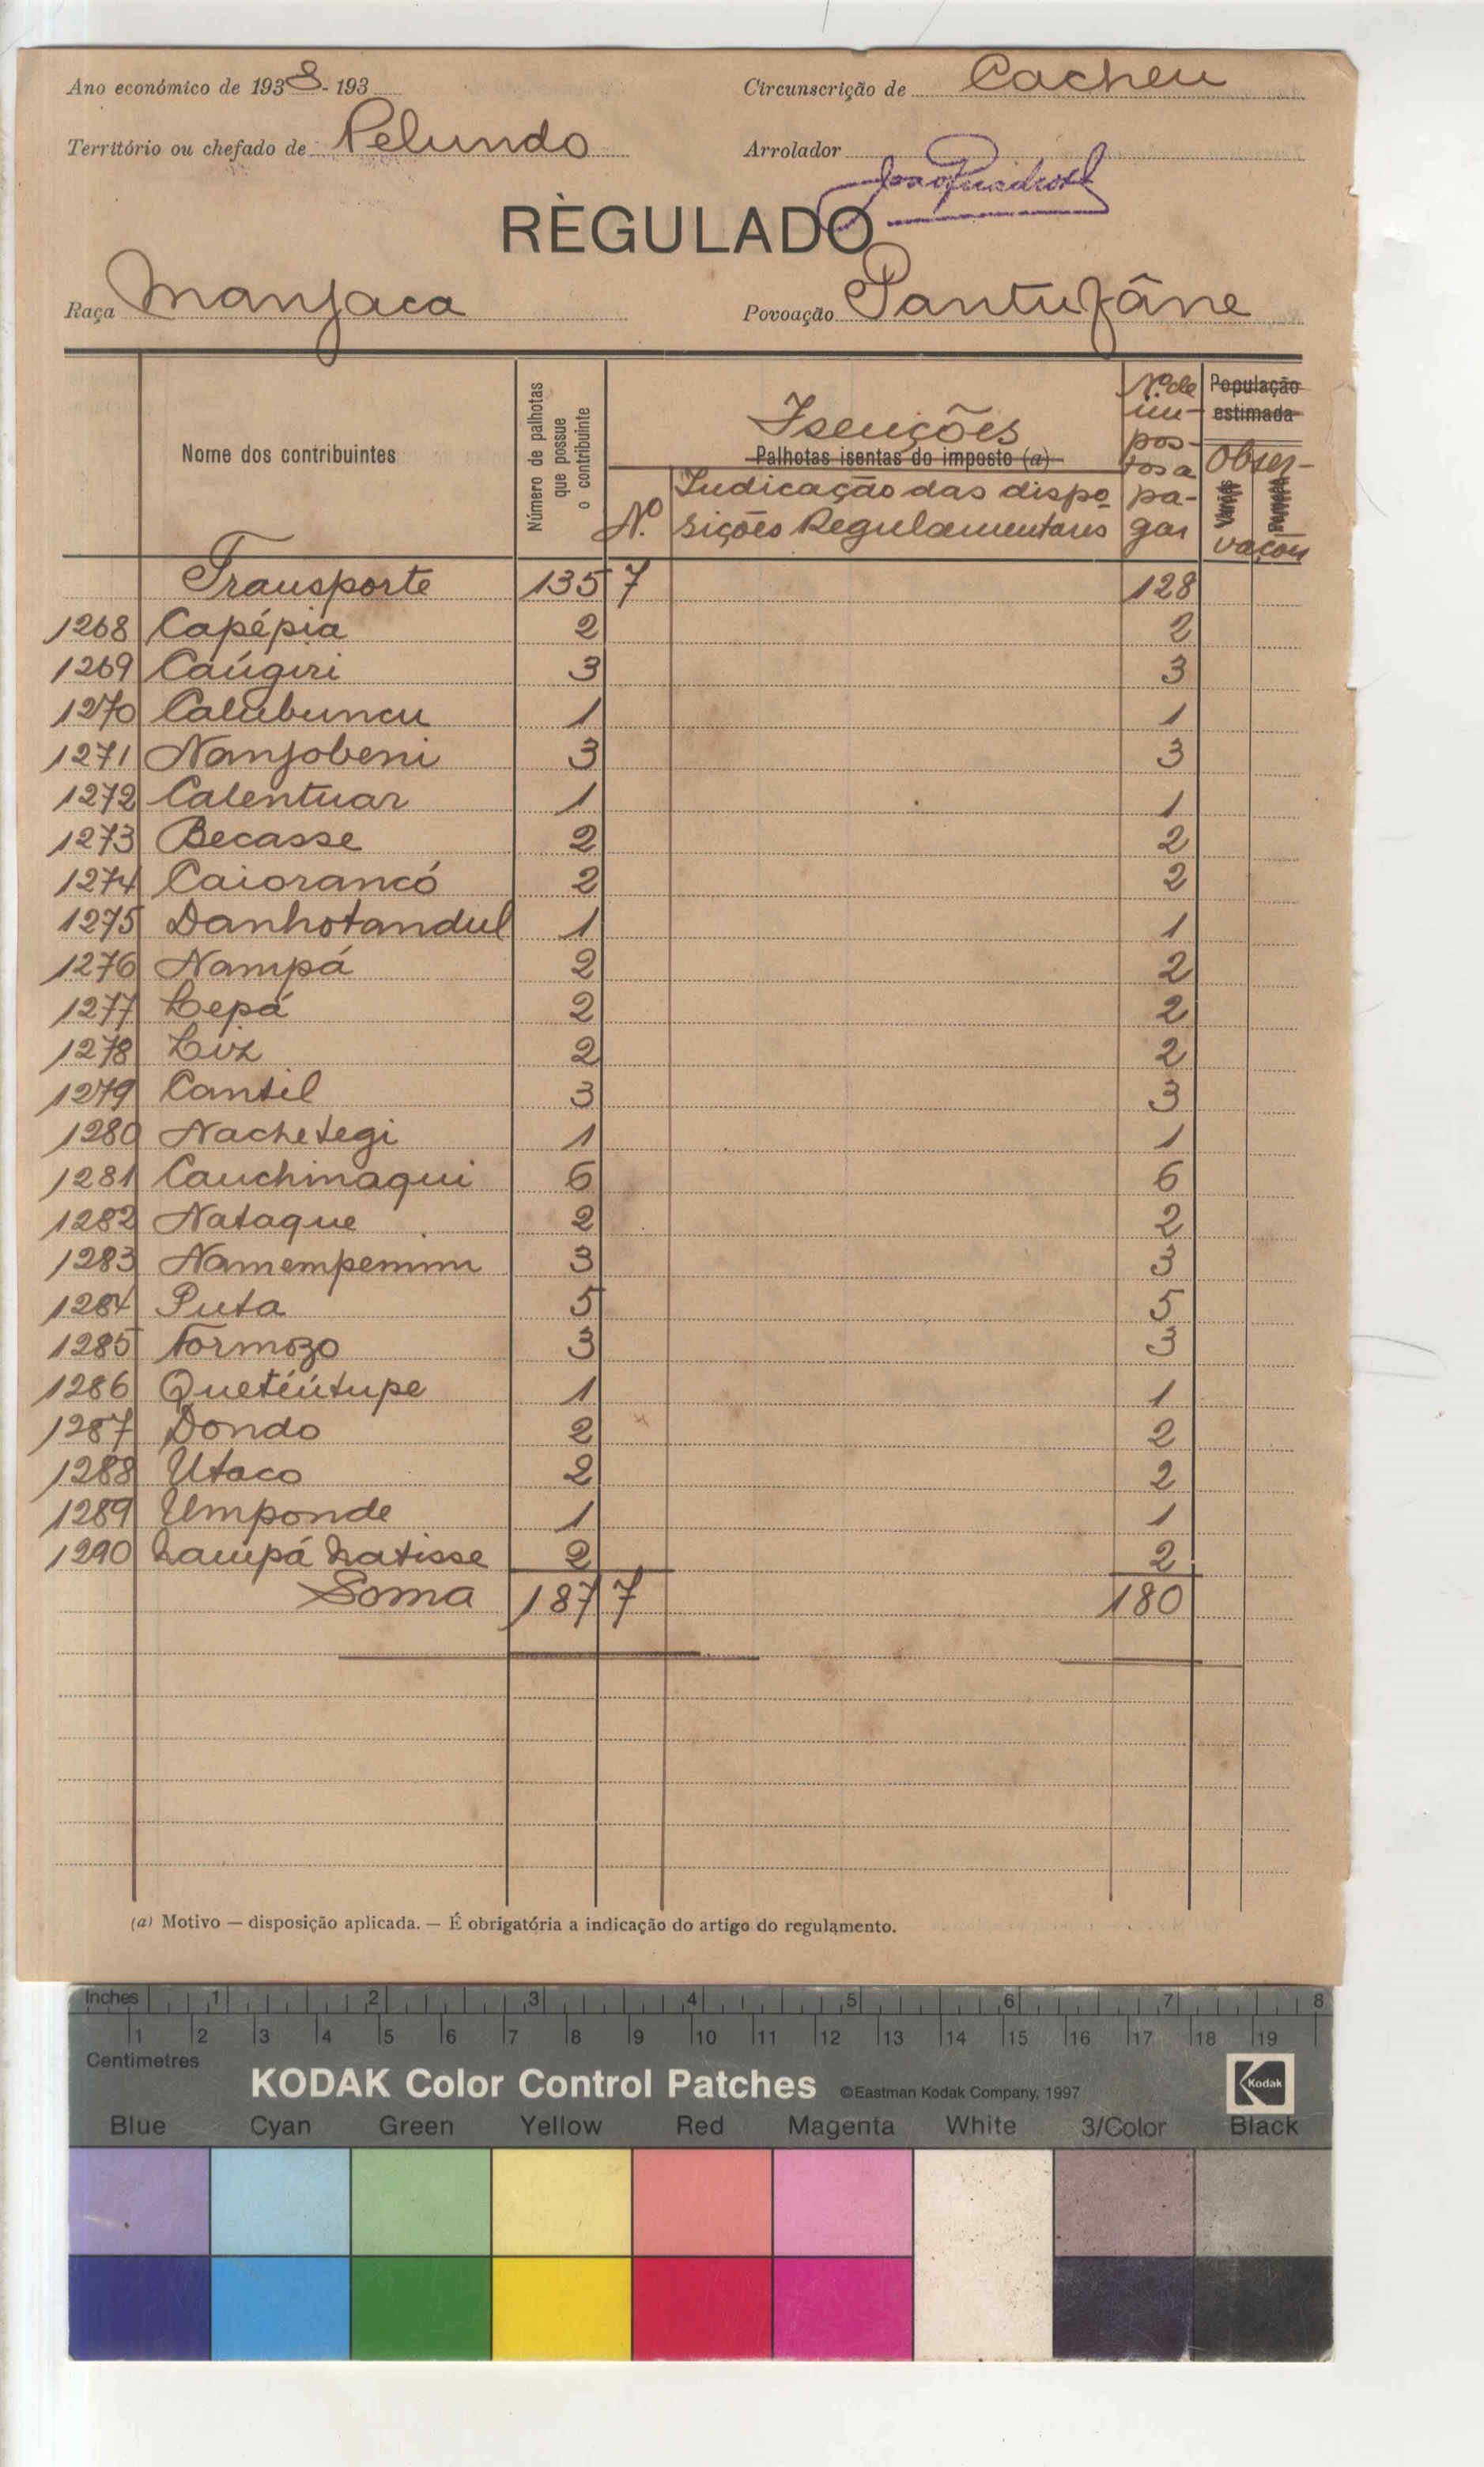 Ano económico de 1938-193
Circunscrição de Cacheu
Território ou chefado de Pelundo
Arrolador
RÈGULADO
Raça Manjaca
Povoação Pantufâne
Nome dos contribuintes
Número de palhotas que possue o contribuinte
Isenções
Palhotas isentas do imposto (a)
Nº
Indicação das dispo-
sições Regulamentares
Nº de im-pos-tos a pa-gar
População estimada
Obser-vações
Transporte 135 7 128
1268 Capépia 2 2
1269 Caúgiri 3 3
1270 Calubuncu 1 1
1271 Nanjobeni 3 3
1272 Calentuar 1 1
1273 Becasse 2 2
1274 Caiorancó 2 2
1275 Danhotandul 1 1
1276 Nampá 2 2
1277 Lepá 2 2
1278 Liz 2 2
1279 Cantil 3 3
1280 Nachetegi 1 1
1281 Cauchinaqui 6 6
1282 Nataque 2 2
1283 Namempemim 3 3
1284 Puta 5 5
1285 Formozo 3 3
1286 Quetéútupe 1 1
1287 Dondo 2 2
1288 Utaco 2 2
1289 Umponde 1 1
1290 Naupá Natisse 2 2
Soma 187 7 180
(a) Motivo — disposição aplicada. — É obrigatória a indicação do artigo do regulamento.
Inches 1 2 3 4 5 6 7 8
1 2 3 4 5 6 7 8 9 10 11 12 13 14 15 16 17 18 19
Centimetres
KODAK Color Control Patches ©Eastman Kodak Company, 1997 Kodak
Blue Cyan Green Yellow Red Magenta White 3/Color Black